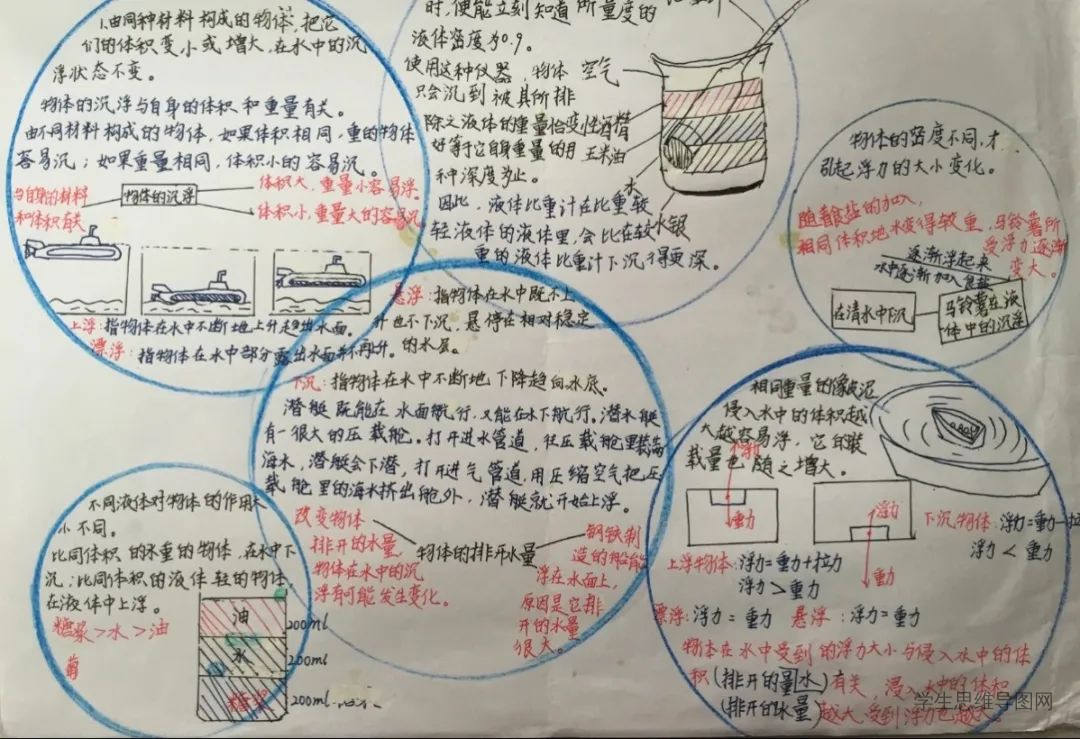 1.由同种材料构成的物体,把它
们的体积变小或增大,在水中的沉
浮状态不变。
物体的沉浮与自身的体积和重量有关。
由不同材料构成的物体,如果体积相同,重的物体
容易沉;如果重量相同,体积小的容易沉。
与自身的材料
和体积有关
物体的沉浮
体积大,重量小容易浮。
体积小,重量大的容易沉
上浮:指物体在水中不断地上升趋出水面。
漂浮:指物体在水中部分露出水面并不再升。
时,便能立刻知道所量度的
液体密度为0.9。
使用这种仪器,物体
只会沉到被其所排
除之液体的重量恰
好等于它自身重量的
种深度为止。
因此,液体比重计在比重较
轻液体的液体里,会比在较
重的液体比重计下沉得更深。
空气
变性酒精
玉米油
水
水银
物体的密度不同,才
引起浮力的大小变化。
随着食盐的加入,
相同体积地水变得较重,马铃薯所
受浮力逐渐
变大。
逐渐浮起来
水中逐渐加入食盐
在清水中下沉
马铃薯在液
体中的沉浮
悬浮:指物体在水中既不上
升也不下沉,悬停在相对稳定
的水层。
下沉:指物体在水中不断地下降趋向水底。
潜艇既能在水面航行,又能在水下航行。潜水艇
有一很大的压载舱。打开进水管道,往压载舱里装满
海水,潜艇会下潜,打开进气管道,用压缩空气把压
载舱里的海水挤出舱外,潜艇就开始上浮。
改变物体
排开的水量
物体在水中的沉
浮有可能发生变化。
物体的排开水量
钢铁制
造的船能
浮在水面上,
原因是它排
开的水量
很大。
不同液体对物体的作用大
小不同。
比同体积的水重的物体,在水中下
沉;比同体积的液体轻的物体,
在液体中上浮。
糖浆>水>油
油
200ml
水
200ml
糖浆
200ml
相同重量的像皮泥
侵入水中的体积越
大越容易浮,它的装
载量也随之增大。
浮力
重力
浮力
重力
上浮物体:浮力=重力+拉力
浮力>重力
下沉物体:浮力=重力-拉
浮力<重力
漂浮:浮力=重力 悬浮:浮力=重力
物体在水中受到的浮力大小与侵入水中的体
积(排开的量水)有关,浸入水中的体积
(排开的水量)越大,受到浮力也越大。
学生思维导图网